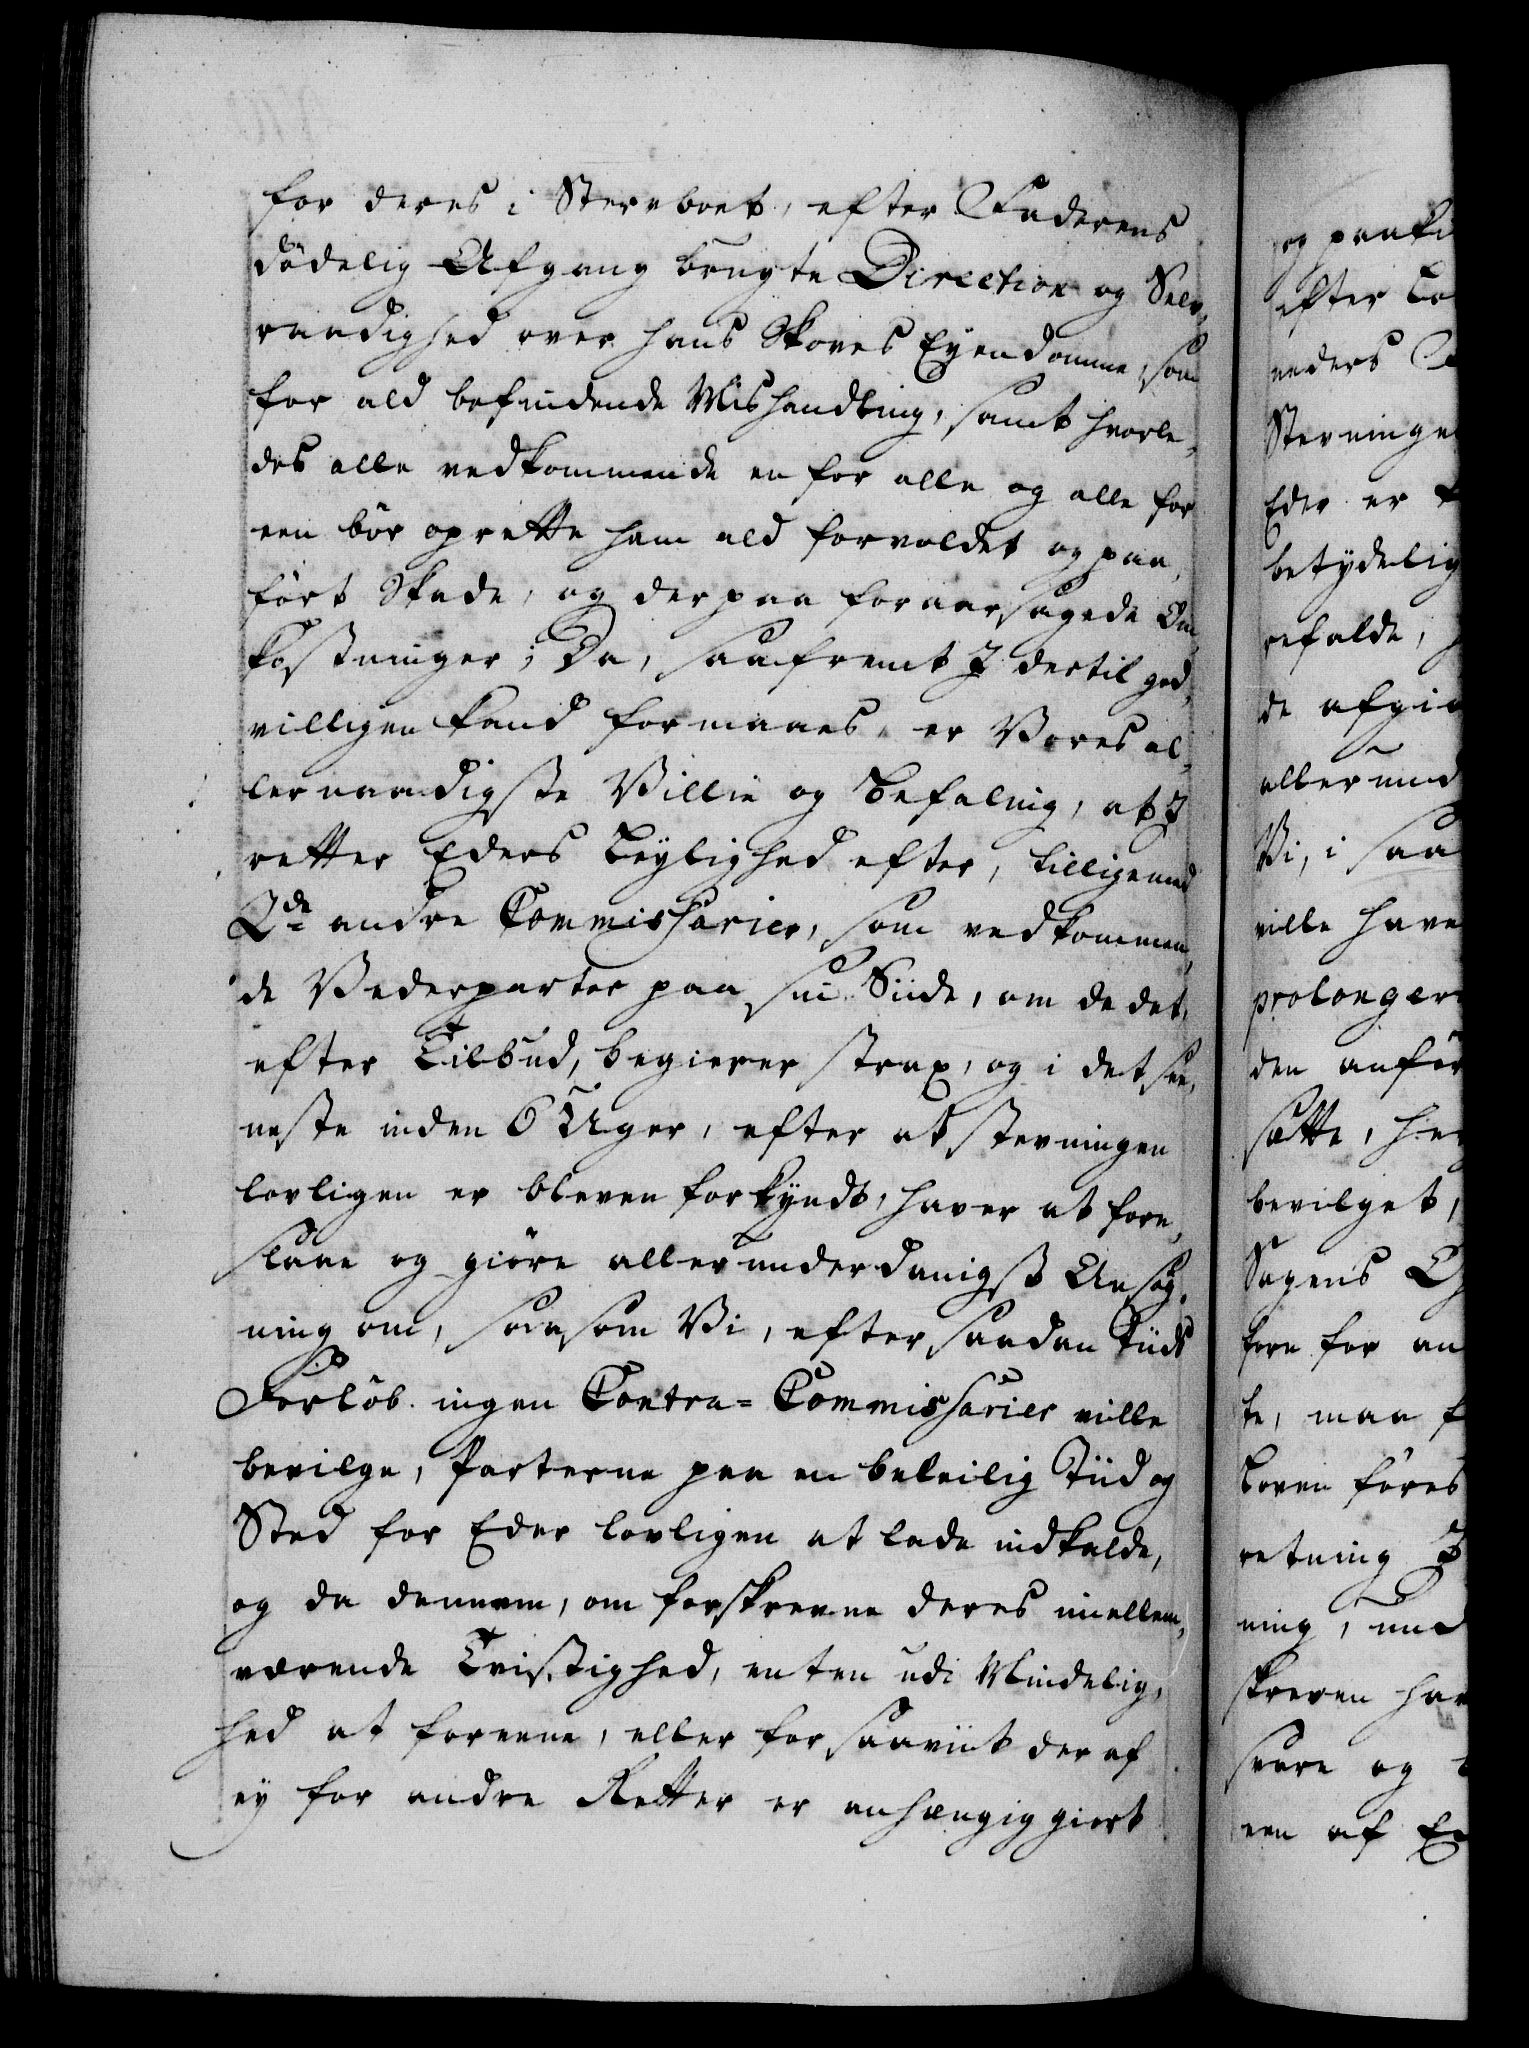 for deres i Sterboet, efter Faderens
dödelig Afgang brugte Direction og Selv,
raadighed over hans Skoves Eyendomme, som
for ald befindende Mishandling, samt hvorle,
des alle vedkommende en for alle og alle for
een bör oprette ham ald forvoldet og paa,
fört Skade, og derpaa foraarsagede Om,
kostninger; Da, saafremt I dertil god,
villigen kand formaaes, er Vores al,
lernaadigste Villie og Befaling, at I
retter Eders Leylighed efter, tilligemed
2de andre Commissarier, som vedkommen,
de Vederparter paa sin Siide, om de det,
efter Tilbud, begierer strax, og i det see,
neste inden 6 Uger, efter at stevningen
lovligen er bleven forkyndt, haver at fore,
slaae og giöre allerunderdanigst Ansög,
ning om, saasom Vi, efter saadan Tiids
Forlöb ingen Contra=Commissarier ville
bevilge, Parterne paa en beleilig Tiid og
Sted for Eder lovligen at lade indkalde,
og da dennem, om forskrevne deres imellem,
værende Tvistighed, enten udi Mindelig,
hed at foreene, eller forsaaviit deraf
ey for andre Retter er anhængiggiort
og paaki
efter Lo
neders
Stevninge
Eder er
betydelig
refalde,
de afgi
allerund
Vi, i saa
ville have
prolonger
den anför
satte, her
bevilget,
Sagens
fore for an
te, maa f
Loven föres
retning
ning, und
skreven hav
svare og
een af E